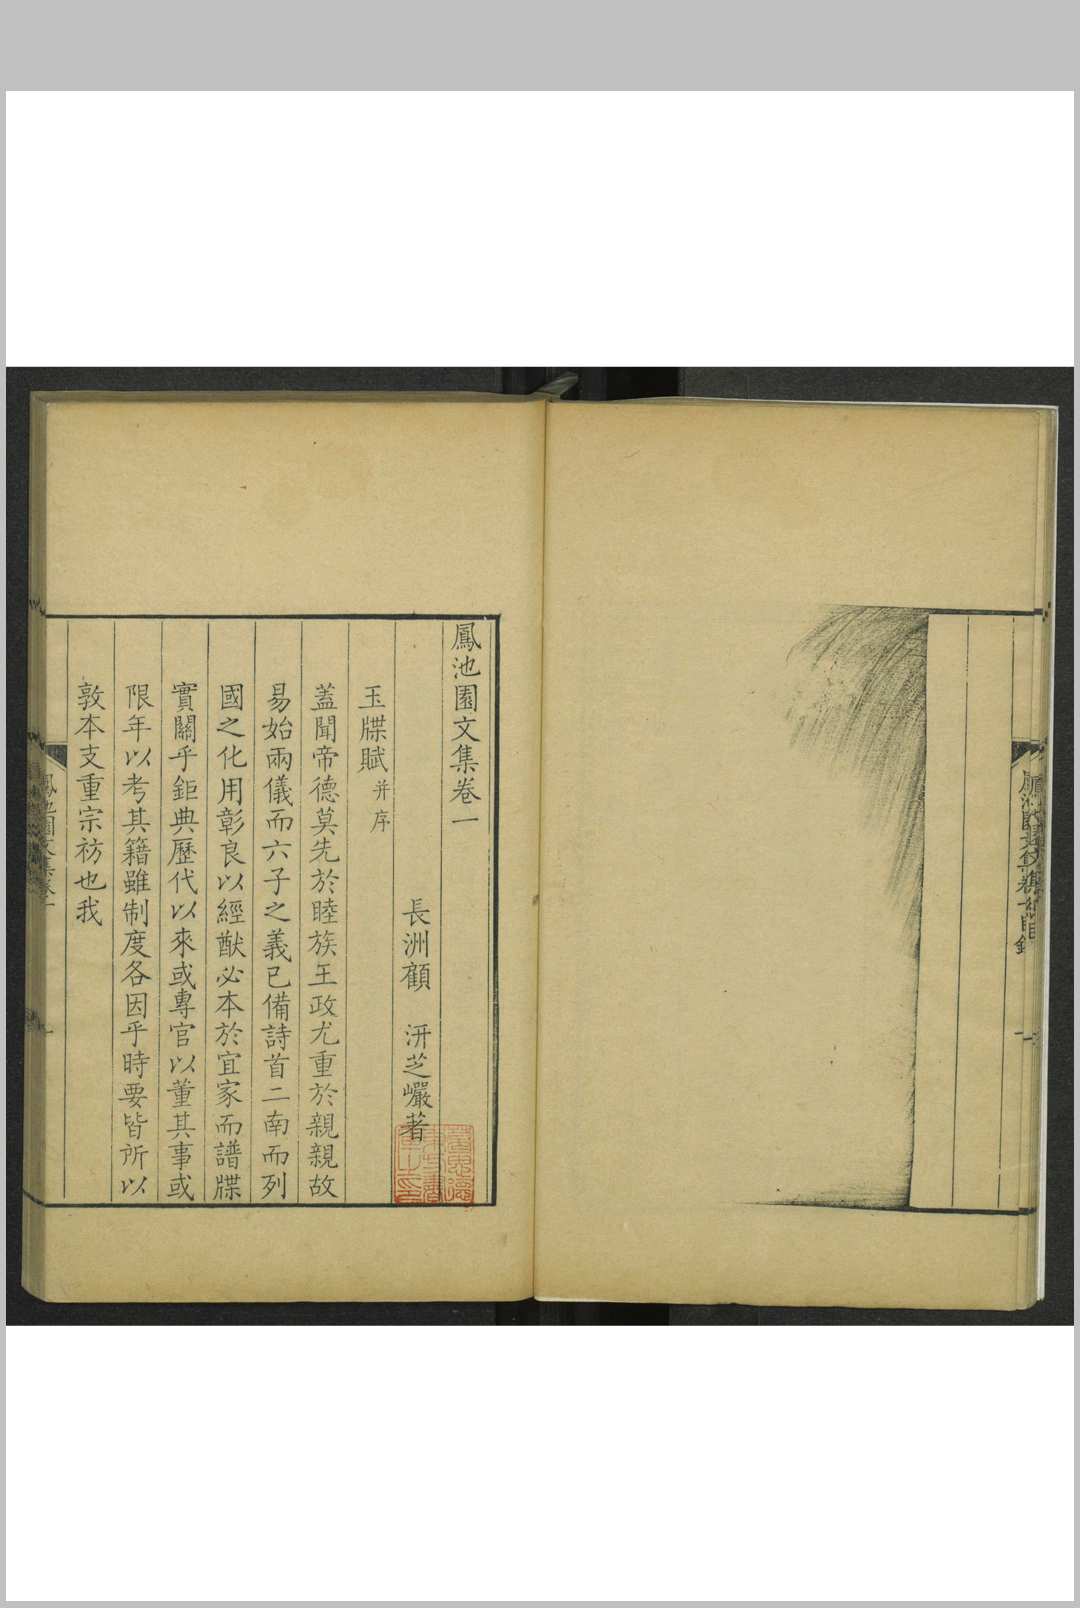 鳳池園文集卷一
長洲顧 汧芝巖著
玉牒賦 并序
蓋聞帝德莫先於睦族王政尤重於親親故
易始兩儀而六子之義已備詩首二南而列
國之化用彰良以經猷必本於宜家而譜牒
實關乎鉅典歷代以來或專官以董其事或
限年以考其籍雖制度各因乎時要皆所以
敦本支重宗祊也我
鳳池園文集卷一
一